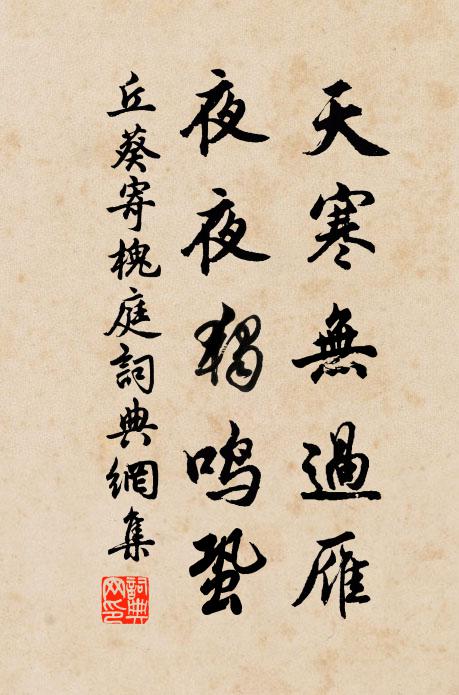 天寒無過雁
夜夜獨鳴蛩
丘葵寄槐庭詞典網集
詞典
网印